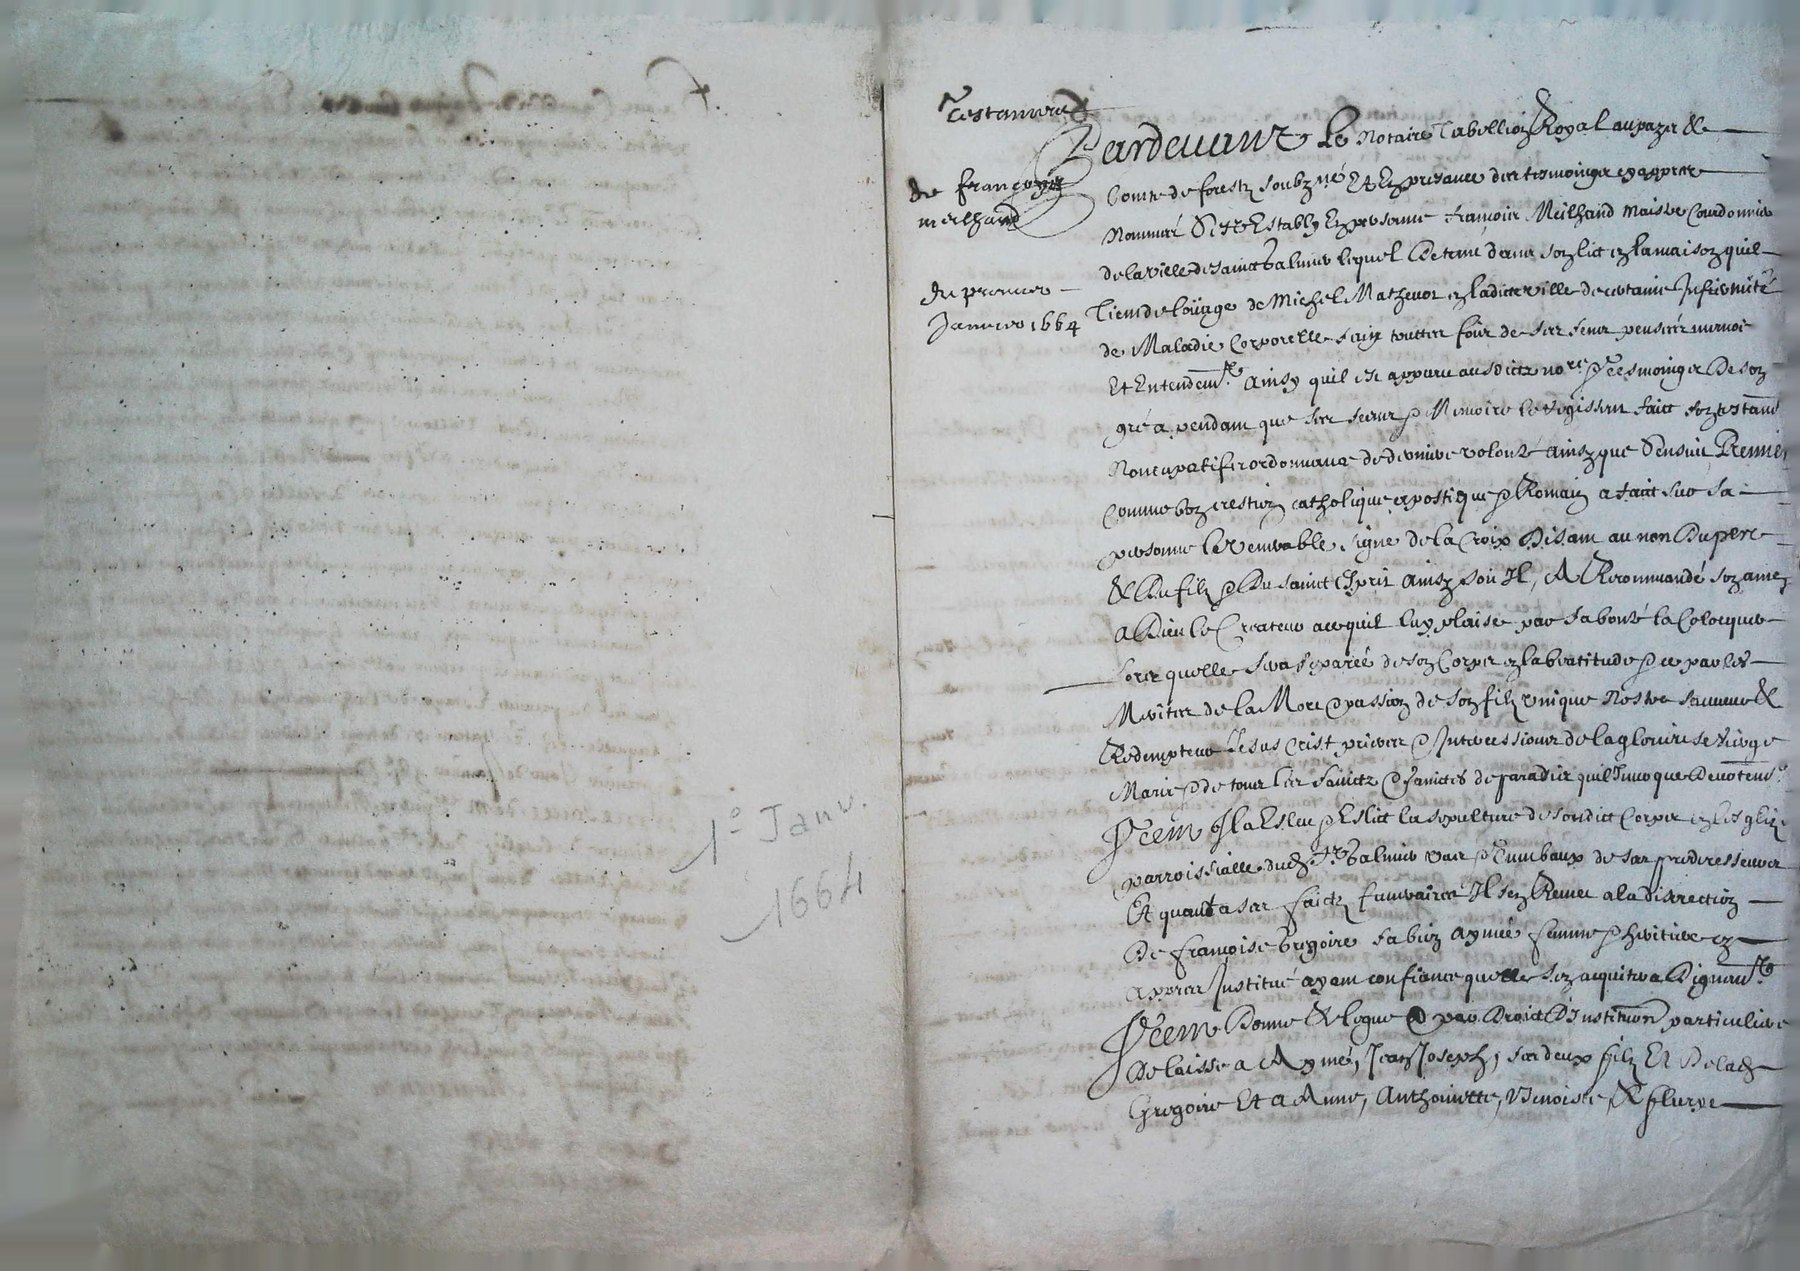 1º Janv.
1664
Testament
de françoys
meilhand
du premier
Janvier 1664
Pardevant Le Notaire Tabellion Royal au pays &
Comte de forestz soubzné Et En presance des tesmoings cy appres
Nommés Sest Estably En personne francois Meilhand Maistre Cordonnier
de la ville de sainct Galmier lequel Detenu dans son lict en la maison quil
Tient de loüage de Michel Mathevot en ladicte ville de certaine Infirmité
de Maladie Corporelle sain touttes fois de ses sens pensées memoire
Et Entendemt Ainsy quil est apparu ausdictz nore & tesmoings De son
gré a pendant que ses sens & Memoire le regissent faict son testamt
Noncupatif et ordonnance de derniere volonté ainsy que Sensuit Premier
Comme bon crestien catholique apostique & Romain a faict sur sa
personne le Venerable signe de la Croix Disant au non Du pere
& Du filz & Du sainct Esprit Ainsy soit Il, A Recommandé son ame
a Dieu le Createur ace quil luy plaise par sa bonté la Colocquer
lors quelle sera separée de son Corps en la beatitude & ce par les
Merites de la Mort & passion de son filz unique Nostre sauveur &
Redempteur Jesus Crist prieres & Intercessions de la glorieuse Vierge
Marie & de tous les sainctz & sainctes de paradis quil Invoque Devotemt
Item Il a Esleu & Eslict la sepulture de sondict Corps en lesglize
parroissialle dudt St Galmier vas & Tumbaux de ses predecesseurs
Et quant a ses faictz funeraires Il sen Remet a la discrection
De françoise Gregoire sa bien aymée femme & heritiere cy
appres Institué ayant confiance quelle sen acquitera Dignemt
Item Donne & legue & par Droict D'Institution particuliere
Delaisse a Aymé, Jean Joseph, ses deux filz Et De ladt
Gregoire Et a Anne, Anthoinette, Benoiste, & flurye